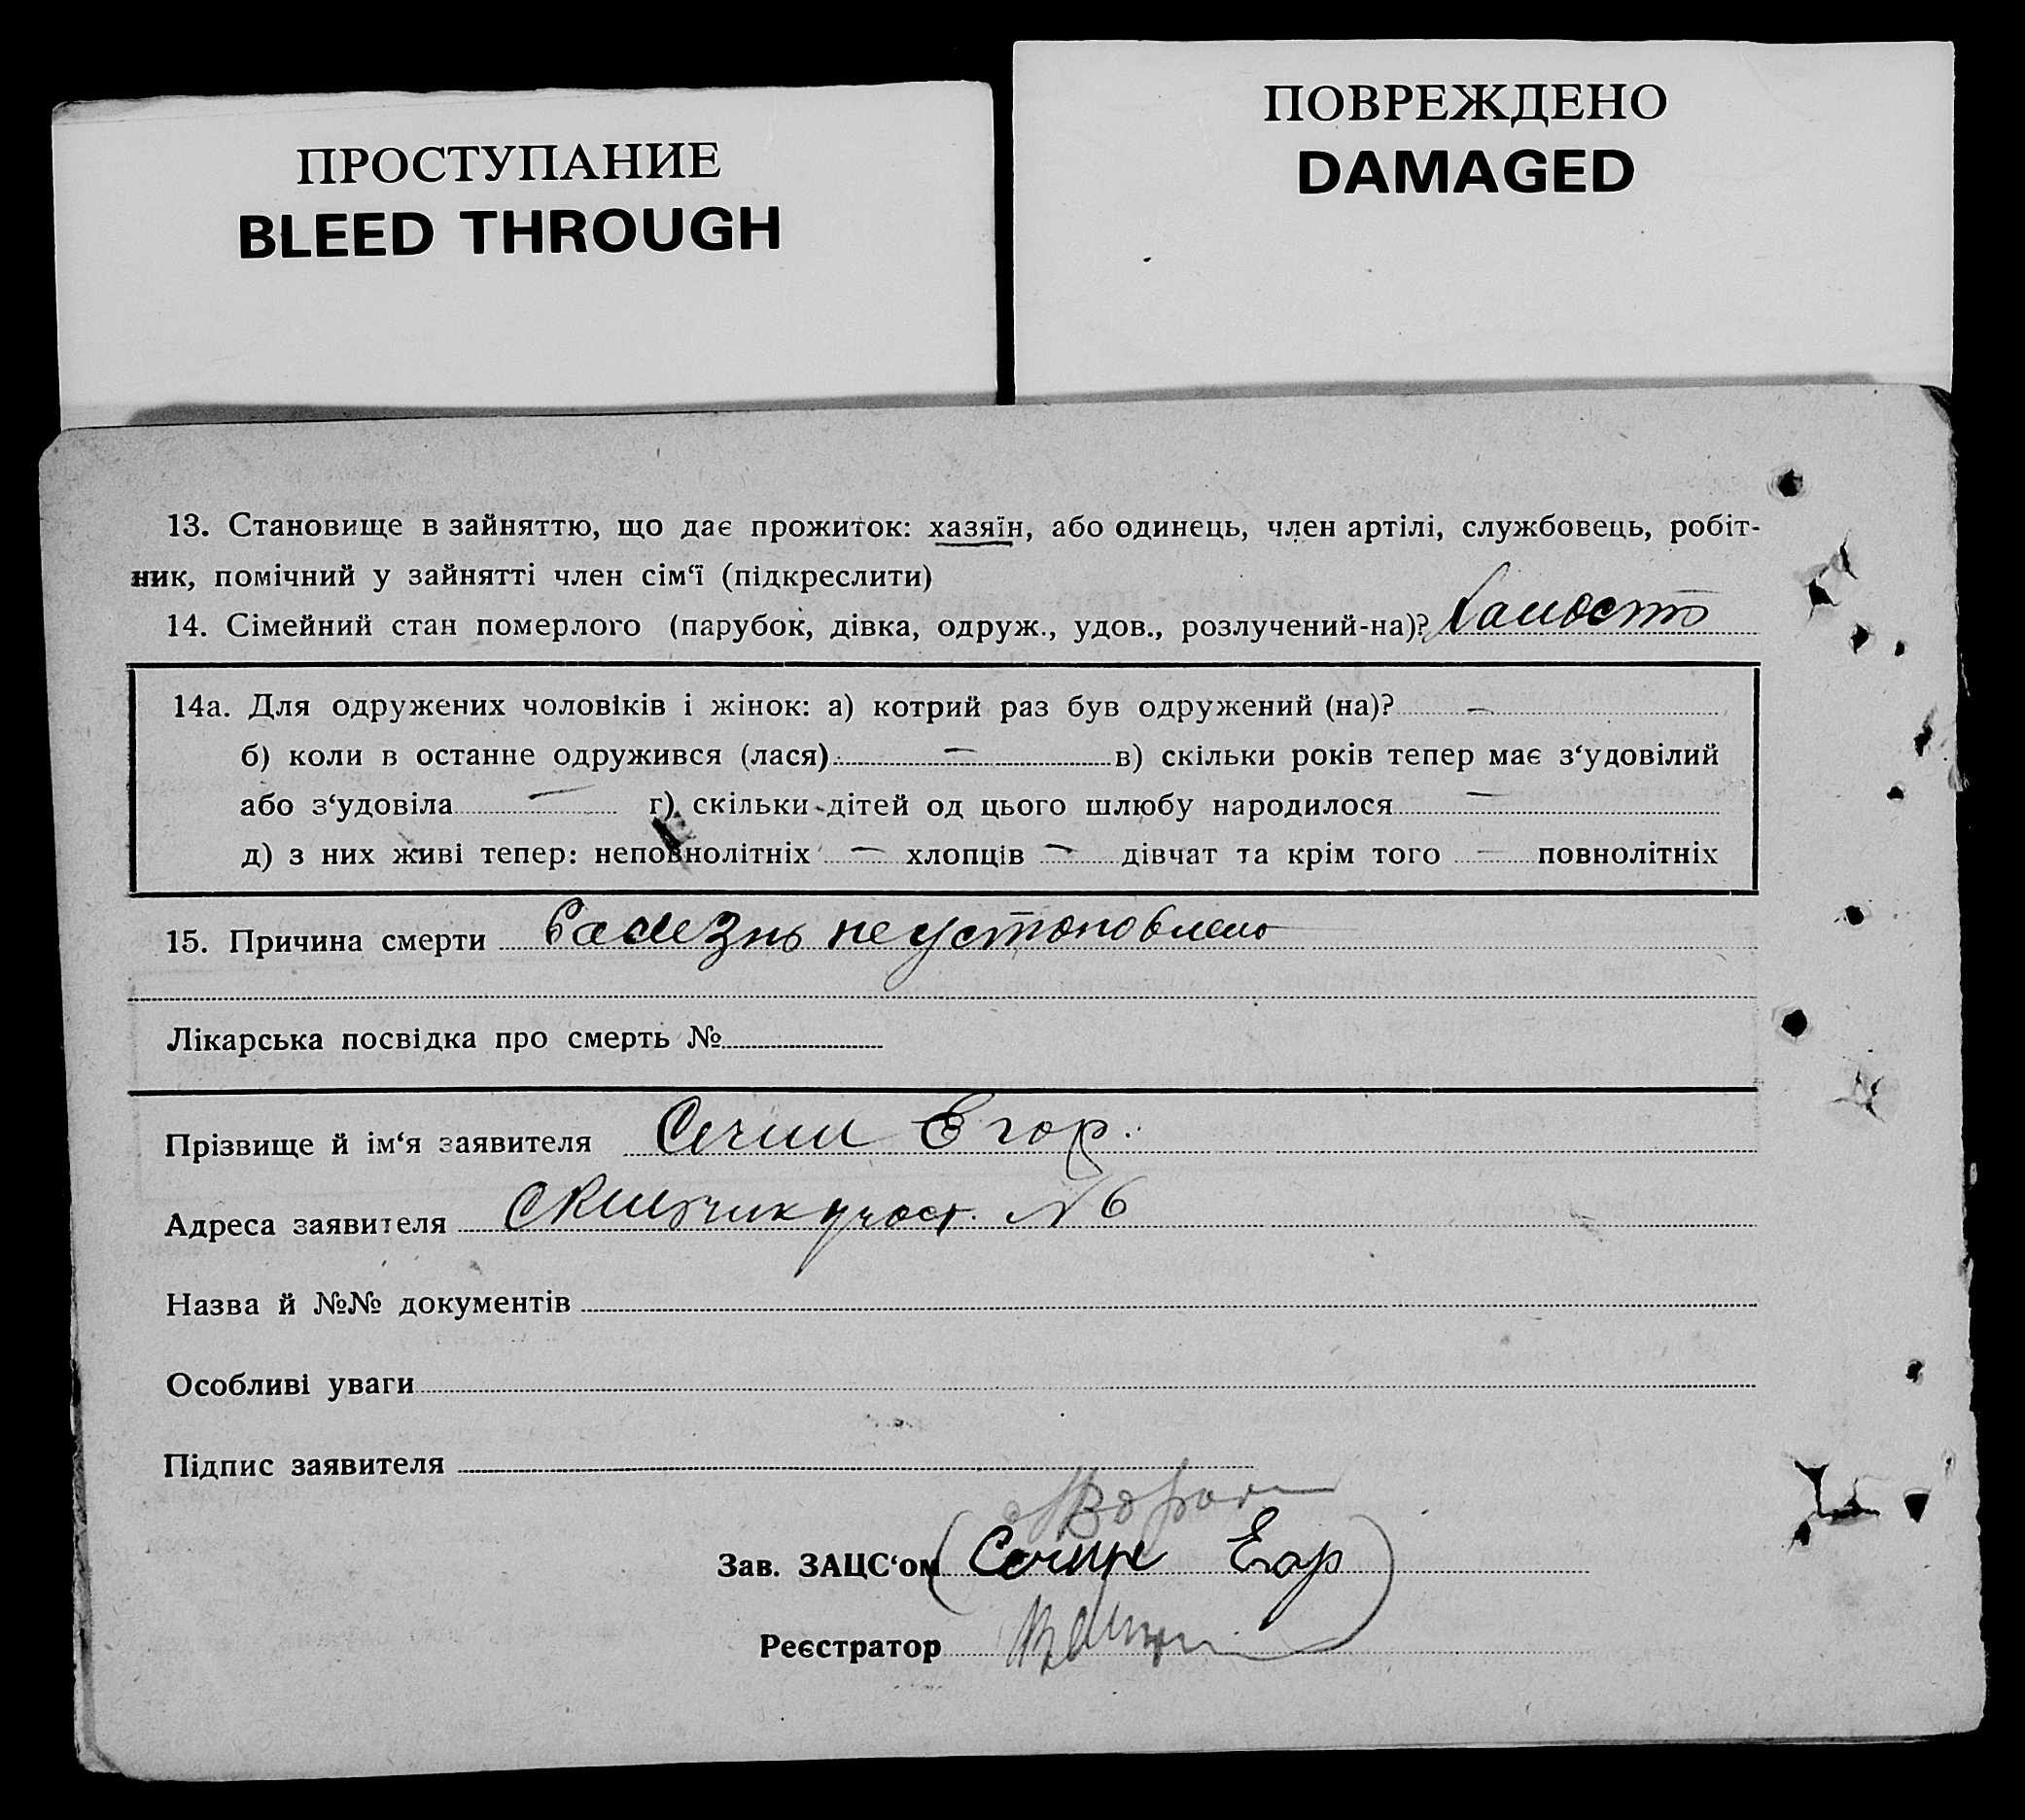 ПРОСТУПАНИЕ
BLEED THROUGH
ПОВРЕЖДЕНО
DAMAGED
13. Становище в зайняттю, що дає прожиток: хазяїн, або одинець, член артілі, службовець, робіт-
ник, помічний у зайнятті член сім‘ї (підкреслити)
14. Сімейний стан померлого (парубок, дівка, одруж., удов., розлучений-на)? холосто
14а. Для одружених чоловіків і жінок: а) котрий раз був одружений (на)? —
б) коли в останне одружився (лася) — в) скільки років тепер має з‘удовілий
або з‘удовіла — г) скільки дітей од цього шлюбу народилося —
д) з них живі тепер: неповнолітніх — хлопців — дівчат та крім того — повнолітніх
15. Причина смерти балезнь неустоновлено
Лікарська посвідка про смерть №
Прізвище й ім‘я заявителя Сечин Егор.
Адреса заявителя участ. № 6
Назва й №№ документів
Особливі уваги
Підпис заявителя
Зав. ЗАЦС‘ом (Сечин Егор)
Реєстратор